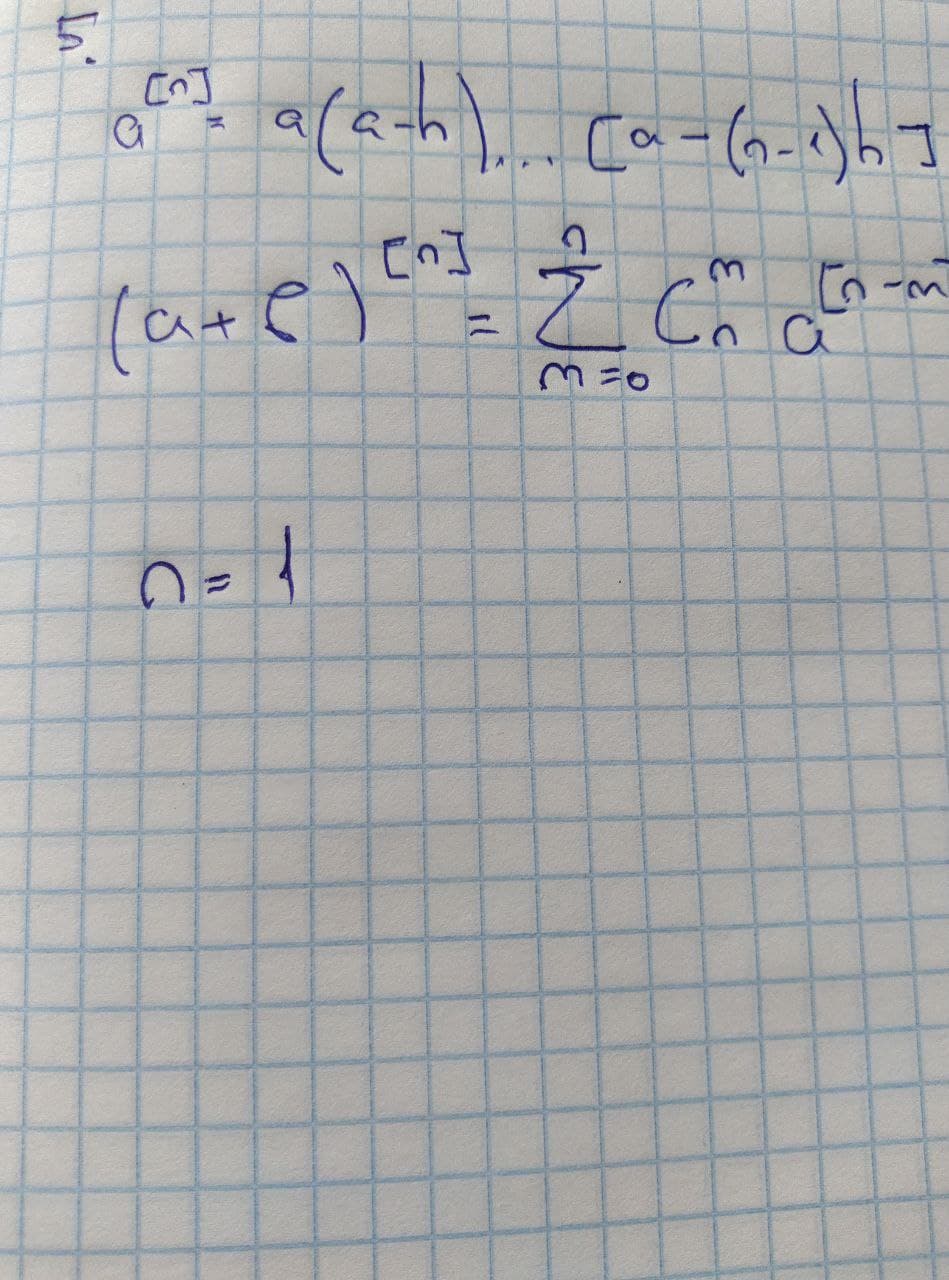 5.
a^[n] = a(a-h)... [a-(n-1)h]
(a+b)^[n] = \sum_{m=0}^{n} C_n^m a^[n-m]
n = 1